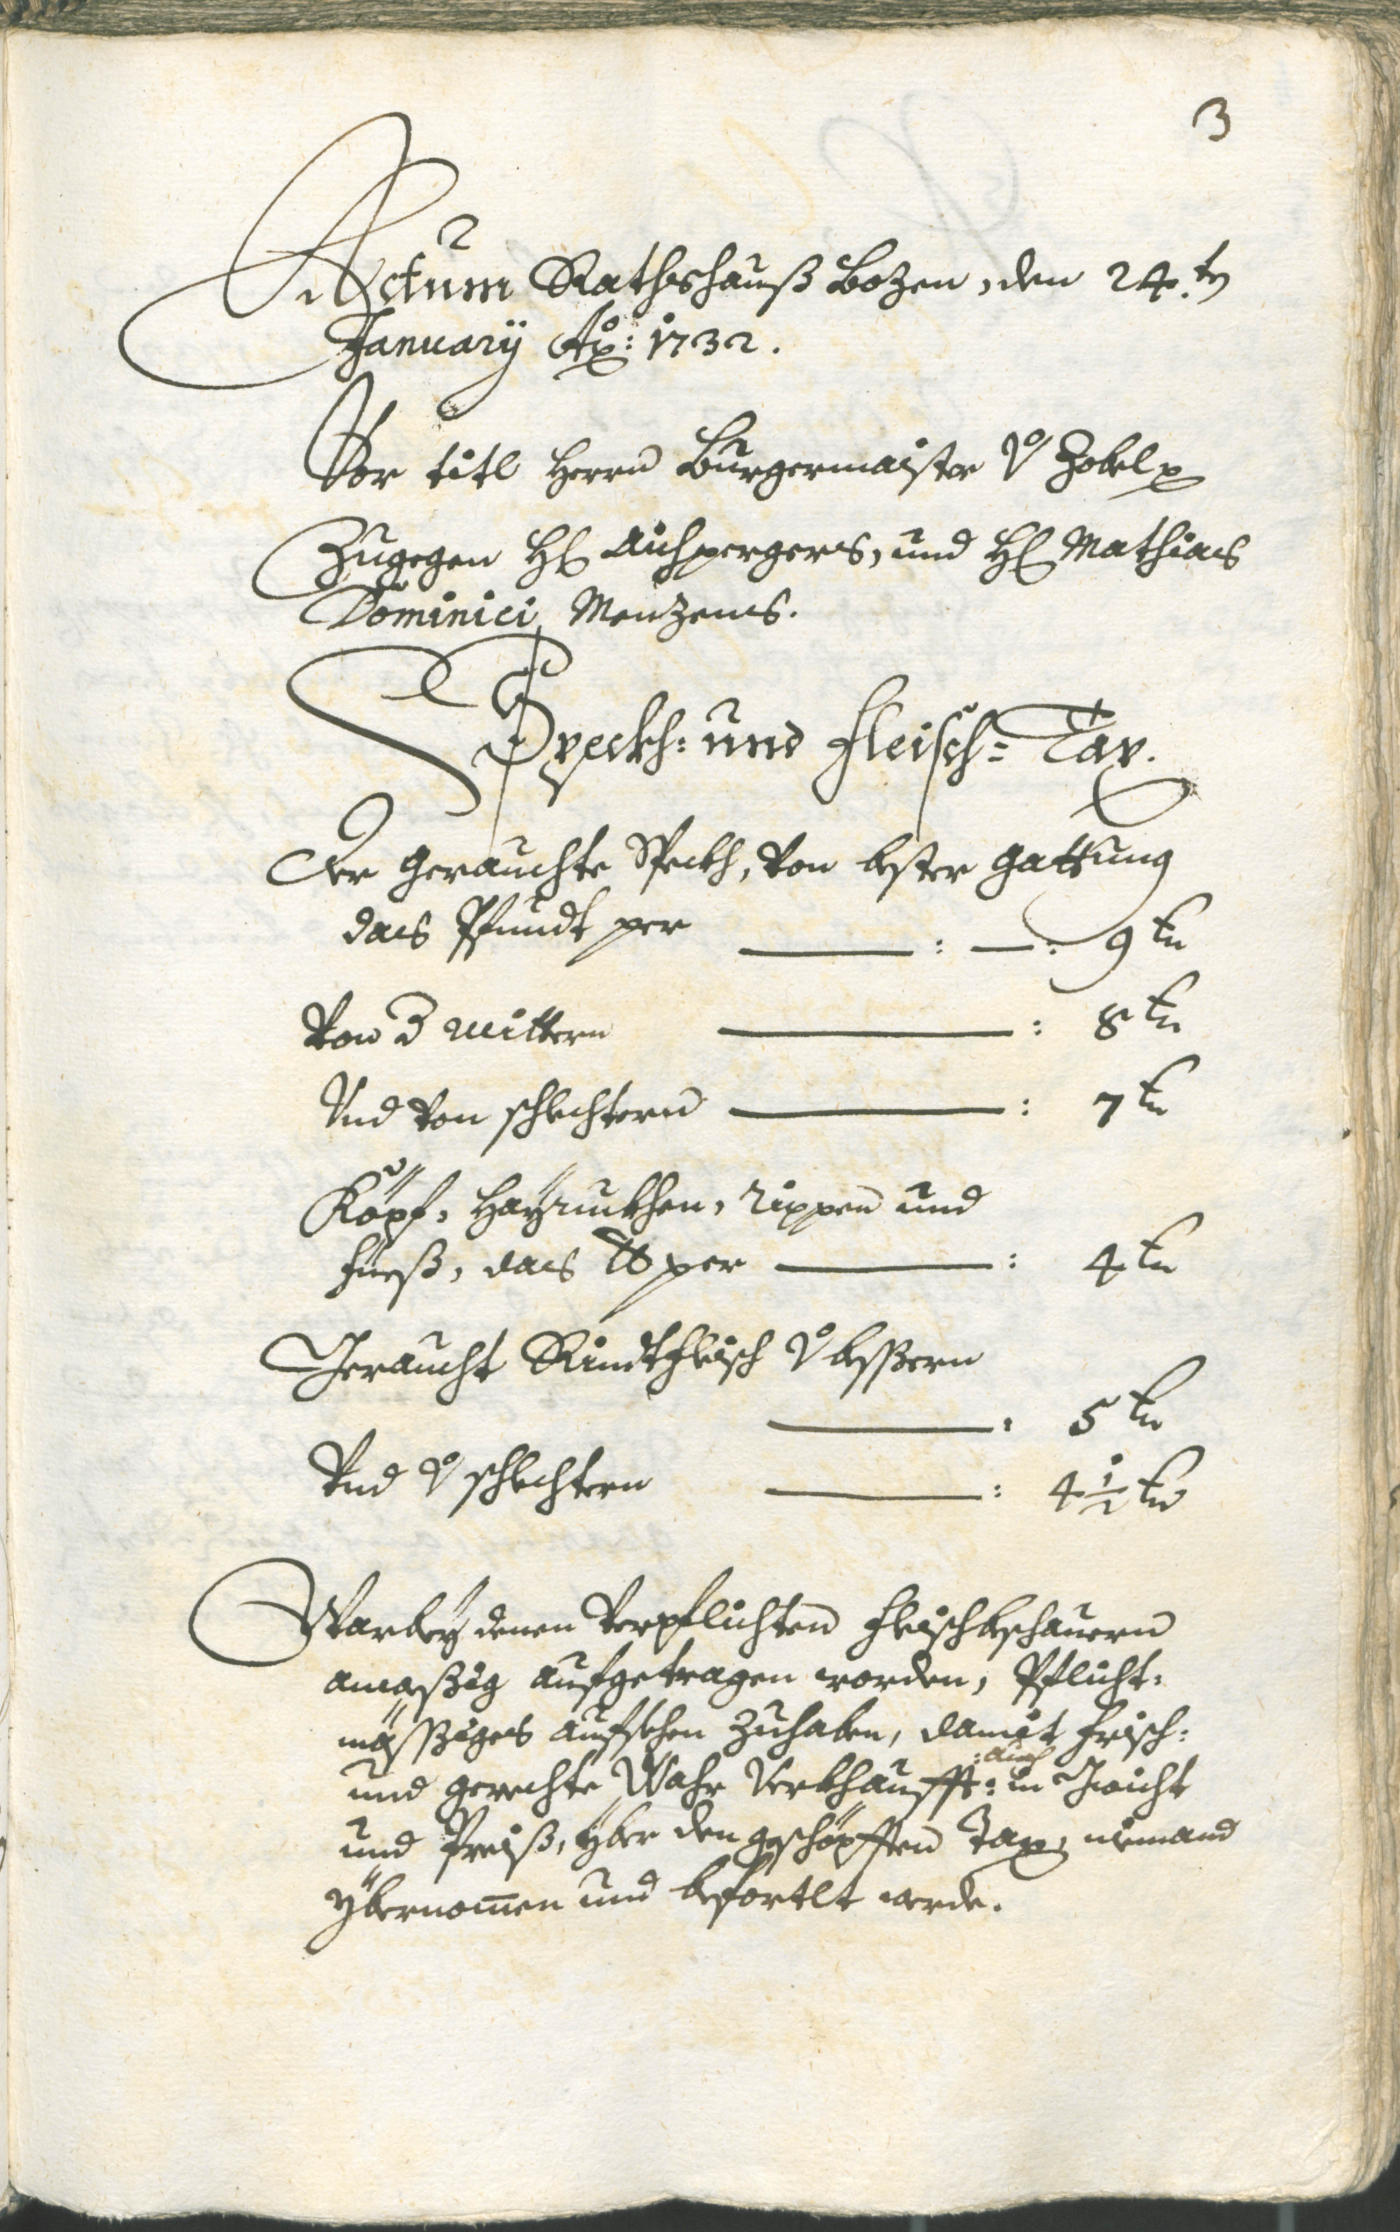 3
Actum Rathshauß Bozen, den 24.tn
January Ao: 1732.
Vor titl Herrn Burgermaister v. Zobel
Zugegen H Aichpergers, und H Mathias
Dominici Menzens.
Speckh: und Fleisch= Tax.
Der gerauchte Speckh, von bester Gattung
das Pfundt per —— : — : 9 kr
Von mittern —— : 8 kr
Und von schlechtern —— : 7 kr
Köpf, rippen und
Füeß, das ℔ per —— : 4 kr
Geraucht Rindtfleisch v. bessern
—— : 5 kr
Und v. schlechtern —— : 4 1/2 kr
Warbey denen verpflichten Fleischbeschauern
aufgetragen worden, Pflicht=
mässiges aufsehen zuhaben, damit frisch=
und gerechte Wahr verkhaufft: :auch in Gwicht
und Preiß, yber den geschöpfften Tax, niemand
ybernomen und befortlt werde.